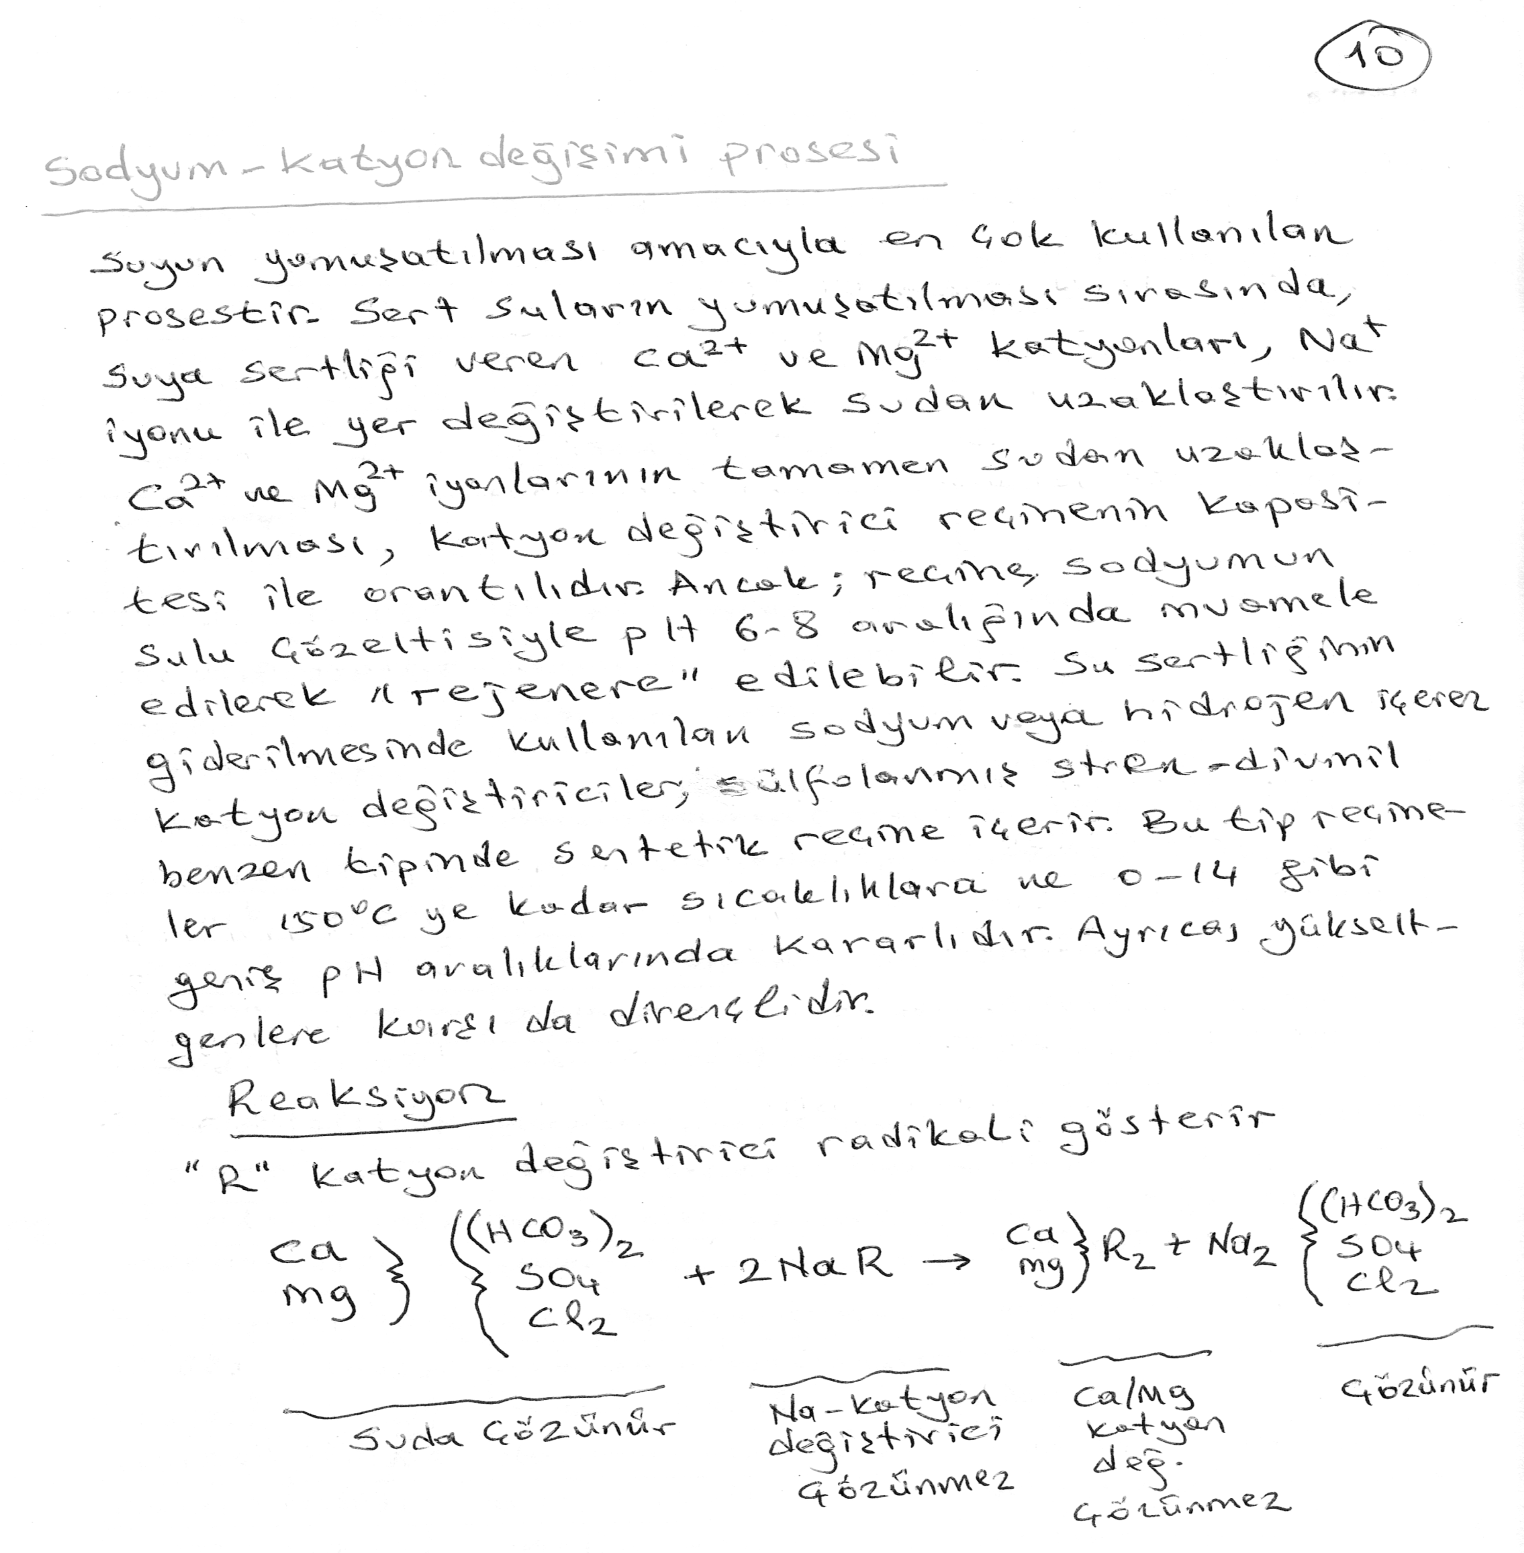 10
Sodyum-katyon değişimi prosesi
Suyun yumuşatılması amacıyla en çok kullanılan
prosestir. Sert suların yumuşatılması sırasında,
suya sertliği veren Ca²⁺ ve Mg²⁺ katyonları, Na⁺
iyonu ile yer değiştirilerek sudan uzaklaştırılır.
Ca²⁺ ve Mg²⁺ iyonlarının tamamen sudan uzaklaş-
tırılması, katyon değiştirici reçinenin kapasi-
tesi ile orantılıdır. Ancak; reçine, sodyumun
sulu çözeltisiyle pH 6-8 aralığında muamele
edilerek "rejenere" edilebilir. Su sertliğinin
giderilmesinde kullanılan sodyum veya hidrojen içeren
katyon değiştiriciler, sülfolanmış stren-divinil
benzen tipinde sentetik reçine içerir. Bu tip reçine-
ler 150°C ye kadar sıcaklıklara ve 0-14 gibi
geniş pH aralıklarında kararlıdır. Ayrıca, yükselt-
genlere karşı da dirençlidir.
Reaksiyon
"R" katyon değiştirici radikali gösterir
Ca Mg } { (HCO₃)₂ SO₄ Cl₂ + 2NaR → Ca Mg } R₂ + Na₂ { (HCO₃)₂ SO₄ Cl₂
Suda çözünür
Na-katyon
değiştirici
çözünmez
Ca/Mg
katyon
değ.
çözünmez
çözünür